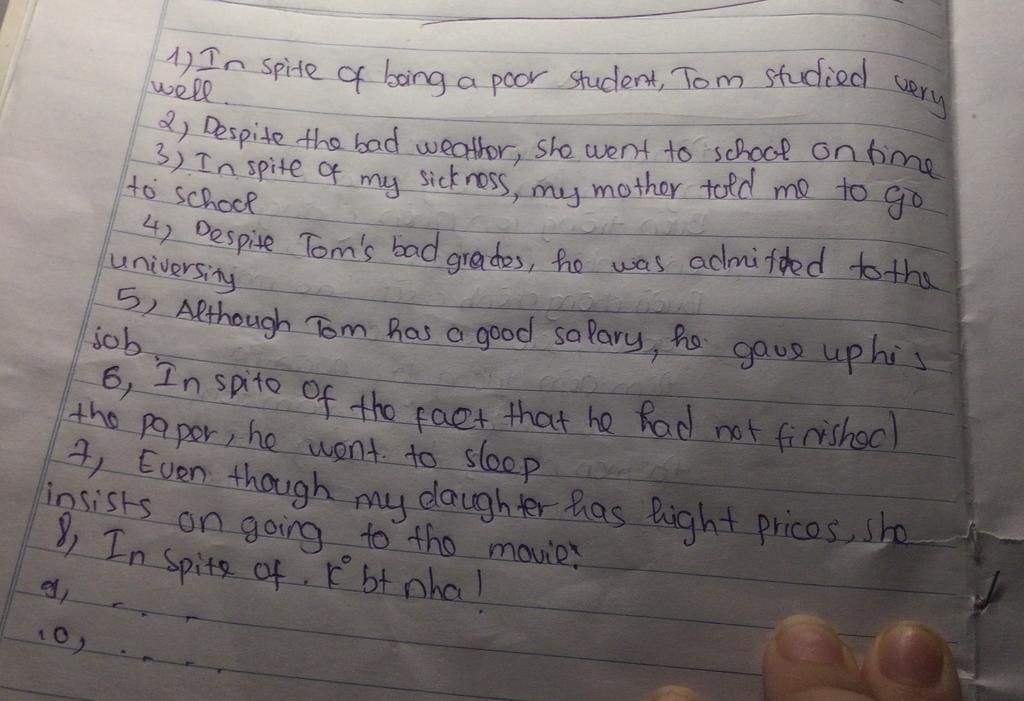 1) In spite of being a poor student, Tom studied very
well.
2) Despite the bad weather, she went to school on time
3) In spite of my sickness, my mother told me to go
to school
4) Despite Tom's bad grades, he was admitted to the
university
5) Although Tom has a good salary, he gave up his
job.
6, In spite of the fact that he had not finished
the paper, he went to sleep
7, Even though my daughter has hight prices, she
insists on going to the movie.
8, In spite of . K° bt nha!
9, - . - . .
10, . - . - .